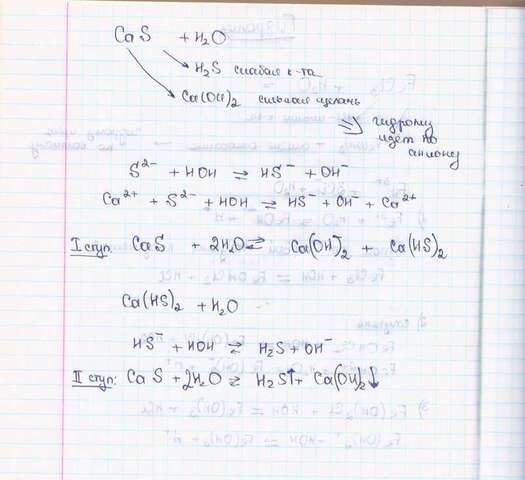 CaS + H₂O
H₂S слабая к-та
Ca(OH)₂ сильная щелочь
⇒ гидролиз
идет по
аниону
S²⁻ + HOH ⇌ HS⁻ + OH⁻
Ca²⁺ + S²⁻ + HOH ⇌ HS⁻ + OH⁻ + Ca²⁺
I ступ: CaS + 2H₂O ⇌ Ca(OH)₂ + Ca(HS)₂
Ca(HS)₂ + H₂O
HS⁻ + HOH ⇌ H₂S + OH⁻
II ступ: CaS + 2H₂O ⇌ H₂S↑ + Ca(OH)₂↓